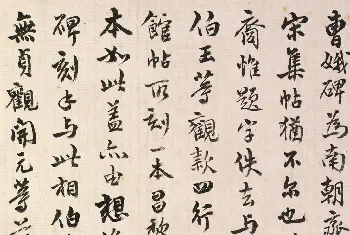 曹娥碑為南朝齊
宋集帖猶不尔也
裔惟題字佚去与
伯玉等觀款四行
館帖所刻一本昌
本如此蓋亦由想
碑刻与此相伯
無貞觀開元等